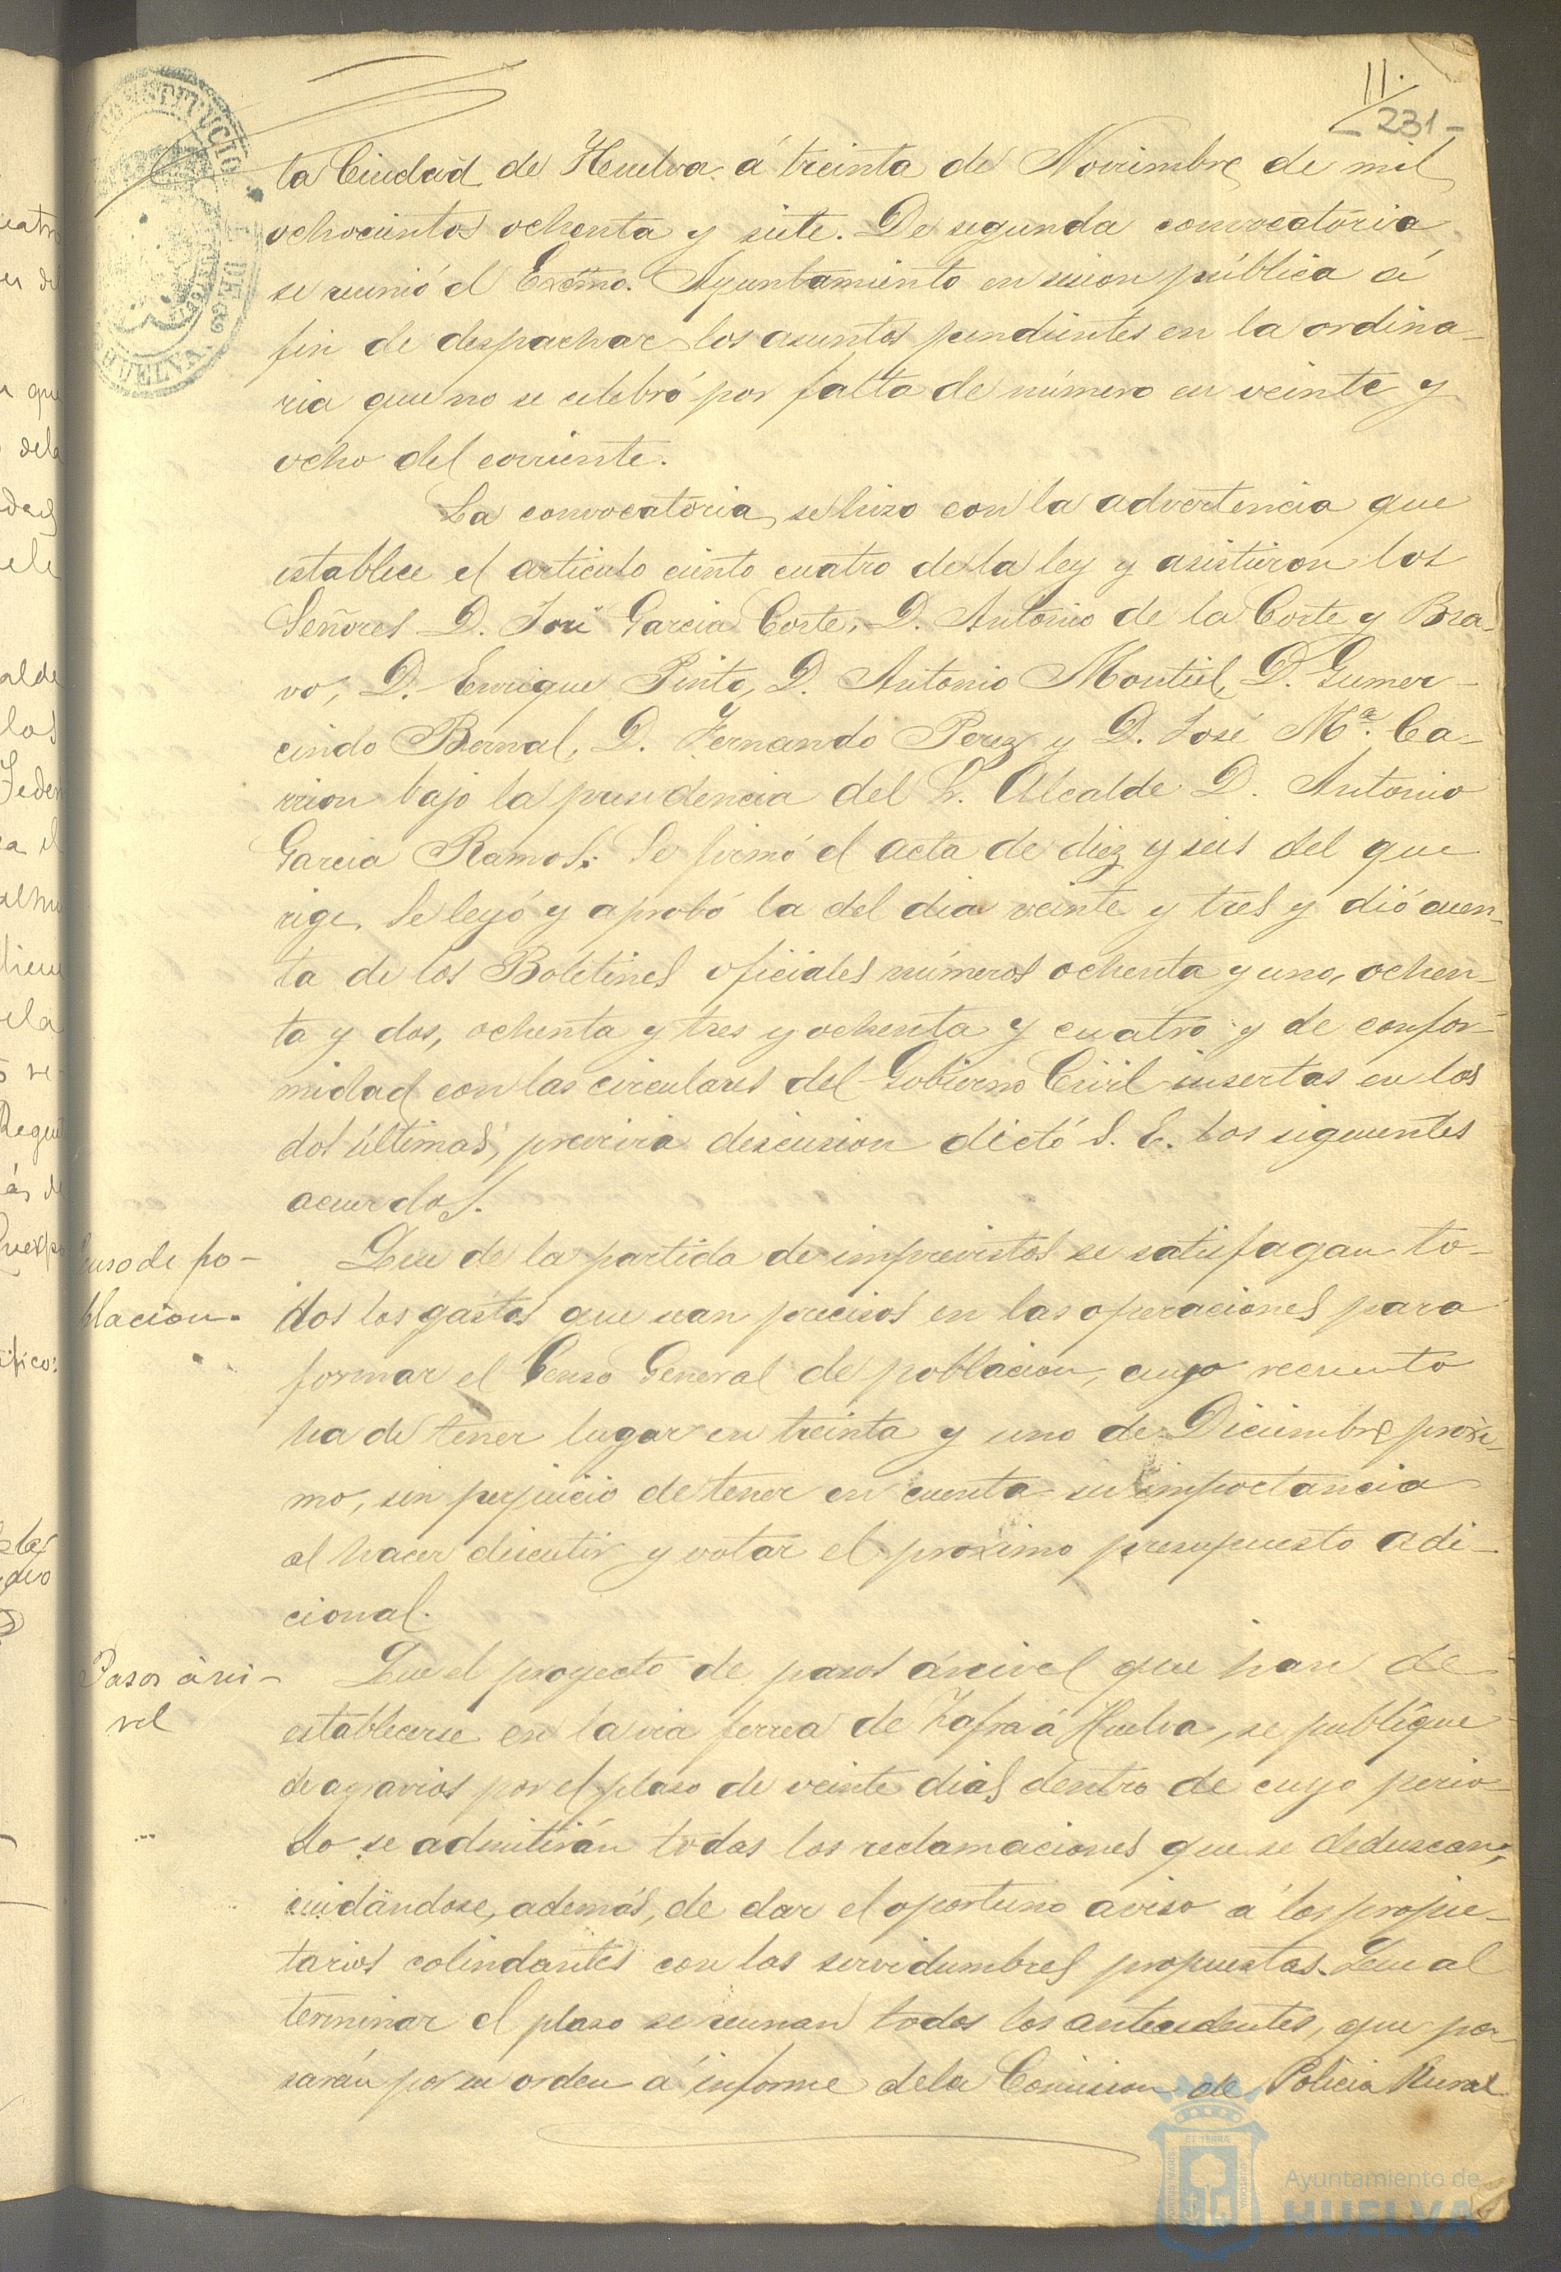 11.
231-
CONSTITVCIO
DE 88
HUELVA.
ta Ciudad de Huelva á treinta de Noviembre de mil
ochocientos ochenta y siete. De segunda convocatoria
se reunió el Excmo. Ayuntamiento en sesion pública á
fin de despachar los asuntos pendientes en la ordina-
ria que no se celebró por falta de número en veinte y
ocho del corriente.
La convocatoria se hizo con la advertencia que
establece el articulo ciento cuatro de la ley y asistieron los
Señores D. José Garcia Corte, D. Antonio de la Corte y Bra-
vo, D. Enrique Pinto, D. Antonio Montiel, D. Gumer-
cindo Bernal, D. Fernando Perez y D. José Mª. Ca-
rrion bajo la presidencia del S. Alcalde D. Antonio
Garcia Ramos: Se firmó el acta de diez y seis del que
rige, se leyó y aprobó la del dia veinte y tres y dió cuen-
ta de los Boletines oficiales números ochenta y uno, ochen-
ta y dos, ochenta y tres y ochenta y cuatro y de confor-
midad con las circulares del Gobierno Civil insertas en los
dos últimas, previa discusion dictó S. E. los siguientes
acuerdos.
Censo de po-
blacion.
Que de la partida de imprevistos se satisfagan to-
dos los gastos que sean precisos en las operaciones para
formar el Censo General de poblacion, cuyo recuento
ha de tener lugar en treinta y uno de Diciembre próxi-
mo, sin perjuicio de tener en cuenta su importancia
al hacer discutir y votar el proximo presupuesto adi-
cional.
Pasos á ni-
vel
Que el proyecto de pasos á nivel que han de
establecerse en la via ferrea de Zafra á Huelva, se publique
de agravios por el plazo de veinte dias dentro de cuyo perio-
do se admitirán todas las reclamaciones que se deduzcan,
cuidándose, además, de dar el oportuno aviso á los propie-
tarios colindantes con las servidumbres propuestas. Que al
terminar el plazo se reunan todos los antecedentes, que pa-
sarán por su orden á informe de la Comision de Policia Rural
Ayuntamiento de
HUELVA